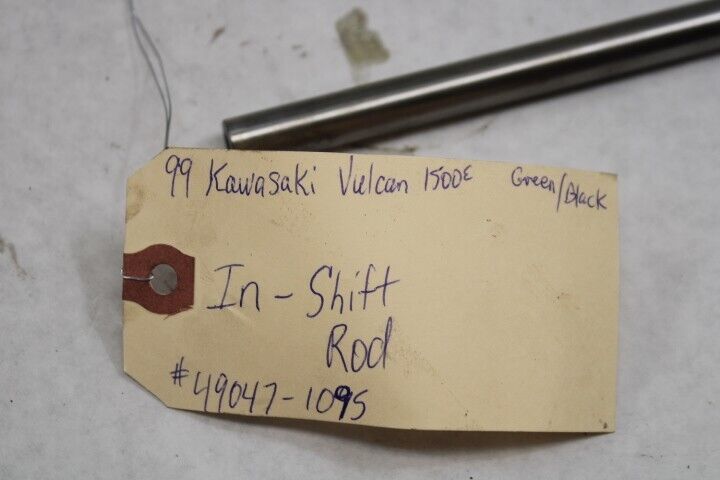 99 Kawasaki Vulcan 1500E Green/Black
In-Shift
Rod
#49047-1095